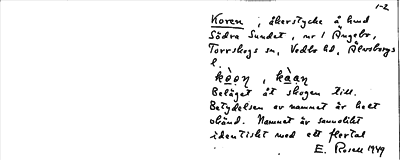 1-2
Koren, åkerstycke å hmd
Södra Sundet, nr 1 Ängebo,
Torrskogs sn, Vedbo hd, Älvsborgs
l.
kò̱o̱n, kà̱a̱n
Beläget åt skogen till.
Betydelsen av namnet är helt
okänd. Namnet är sannolikt
identiskt med ett flertal
E. Rosell 1949